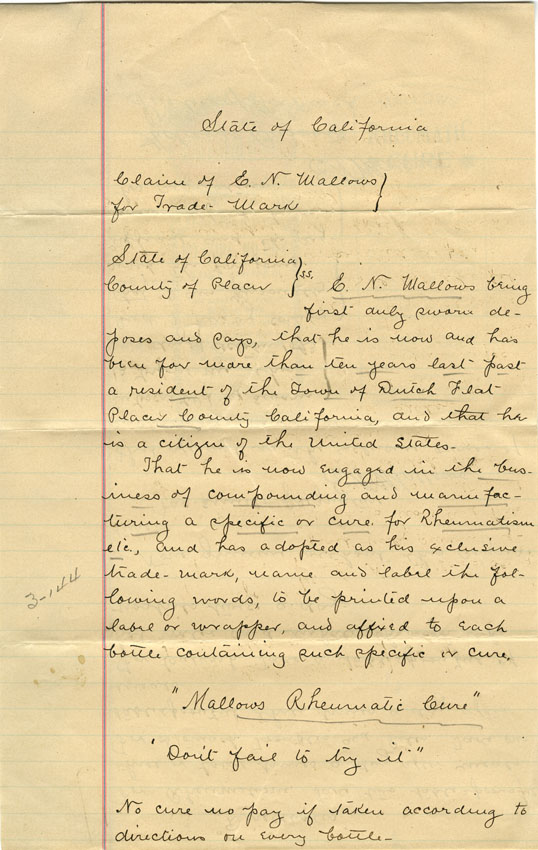 State of California
Claim of E. N. Mallows
for Trade-Mark
State of California
County of Placer } ss. E. N. Mallows being
first duly sworn de-
poses and says, that he is now and has
been for more than ten years last past
a resident of the Town of Dutch Flat
Placer County California, and that he
is a citizen of the United States.
That he is now engaged in the bus-
iness of compounding and manufac-
turing a specific or cure for Rheumatism
etc., and has adopted as his exclusive
trade-mark, name and label the fol-
lowing words, to be printed upon a
label or wrapper, and affixed to each
bottle containing such specific or cure.
3-144
"Mallows Rheumatic Cure"
"Don't fail to try it"
No cure no pay if taken according to
directions on every bottle-